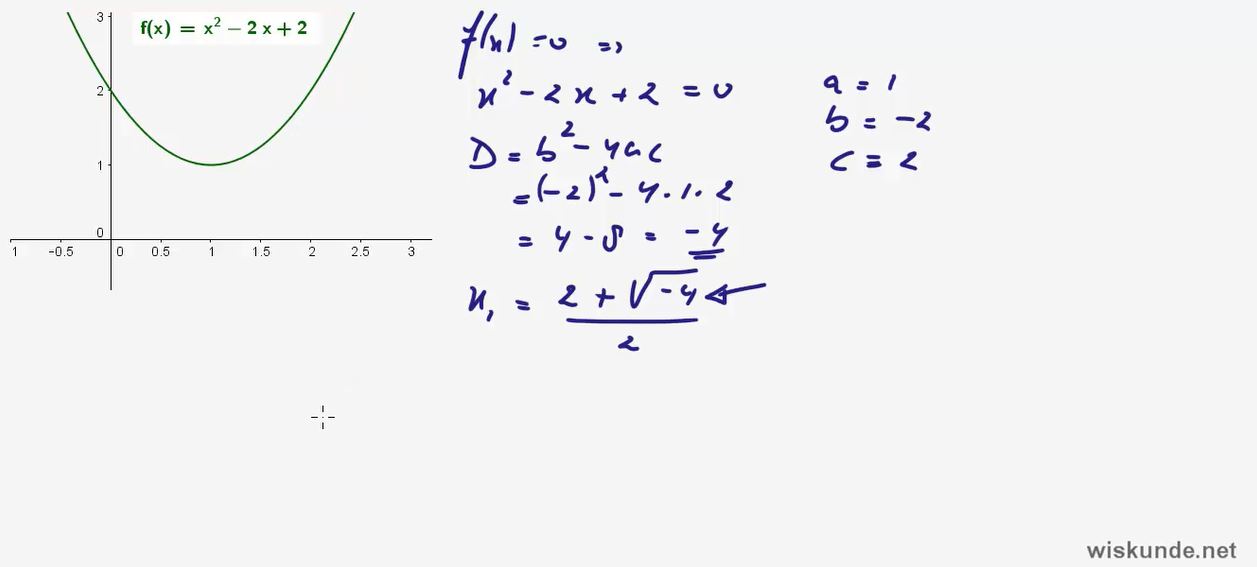 3
f(x) = x² − 2 x + 2
2
1
0
1 -0.5 0 0.5 1 1.5 2 2.5 3
f(x) = 0 ⇒
x² - 2x + 2 = 0
D = b² - 4ac
= (-2)² - 4 · 1 · 2
= 4 - 8 = -4
x₁ = (2 + √-4) / 2
a = 1
b = -2
c = 2
wiskunde.net